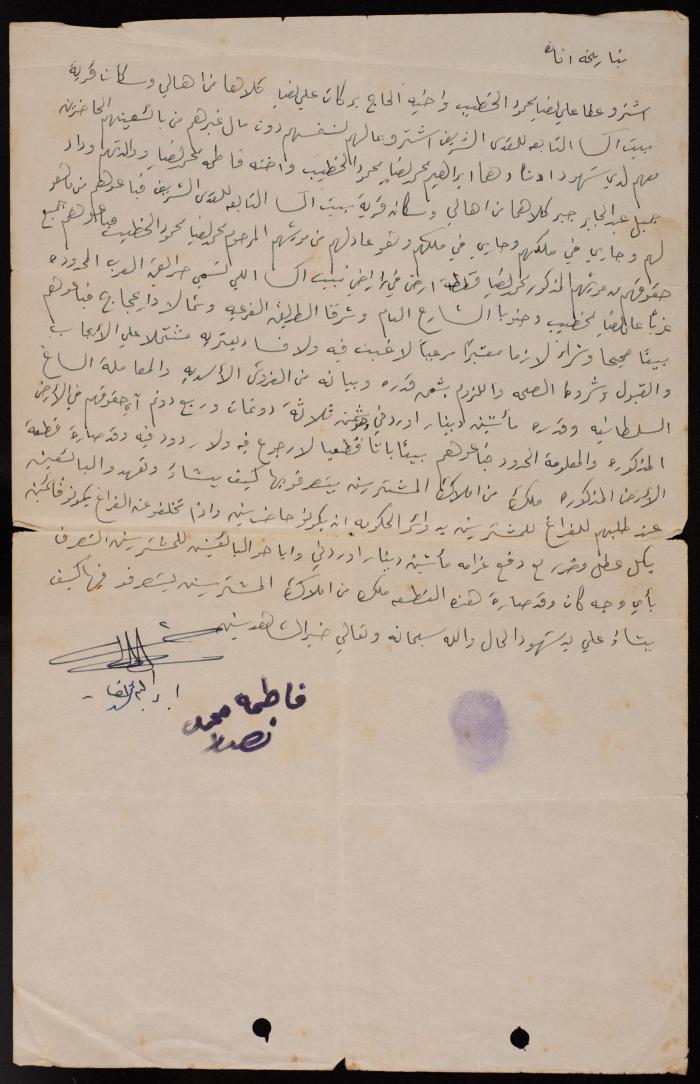 بتاريخه ادناه
اشترو عطا علي لضا محمود الخطيب واخيه الحاج بركات علي لضا كلاهما من اهالي وسكان قرية
بيت اكسا التابعه للقدس الشريف اشترو عمالهم لنفسهم دون مال غيرهم من بائعينهم الحاضرين
معهم لدي شهود ادناه وهما ابراهيم محمد لضا محمود الخطيب واخته فاطمه محمد لضا ووالدتهم وداد
جميل عبد الجابر جبر كلاهما من اهالي وسكان قرية بيت اكسا التابعه للقدس الشريف فباعوهم من ما هو
لهم وجاري في ملكهم وجاري في ملكهم وهو عادلهم من مورثهم المرحوم محمد لضا محمود الخطيب فباعوهم جميع
حقوقهم من مورثهم المذكور محمد لضا قطعة ارض من اراضي بيت اكسا اللي تسمى الغرب المحدوده
غرباً عطا لضا الخطيب وجنوبا الشارع العام وشرقا الطريق الفرعيه وشمالا دار عجاج فباعوهم
بيعًا صحيحا وشراءً لازما معتبرًا مرعياً لا غبن فيه ولا فساد يعتريه مشتملا على الايجاب
والقبول وشروط الصحه واللزوم بثمن قدره وبيانه من القروش الأسديه والمعاملة الساغ
السلطانيه وقدره مأتين دينار اوردني ثمن ثلاثة دونمات وربع دونم حقوقهم في الأرض
المذكوره والمعلومة الحدود فباعوهم بيعًا باتًا قطعيا لا رجوع فيه ولا ردود فيه وقد صارة قطعة
الأرض المذكوره ملكً من املاك المشتريين يتصرفو بها كيف يشاؤ وتعهدو البائعين
عند طلبهم للفراغ للمشتريين بدوائر الحكومه ان يكونو حاضنين واذا تخلفو عن الفراغ يكونو
بكل عطل وضرر مع دفع غرامه مأتين دينار اوردني البائعين للمشتريين التصرف
بأي وجه كان وقد صارة هذه القطعه ملك من املاك المشتريين يتصرفو فيها كيف
يشاؤ علي يد شهود الحال والله سبحانه وتعالى خير الشاهدين
ابراهيم محمد لضا
فاطمه محمد